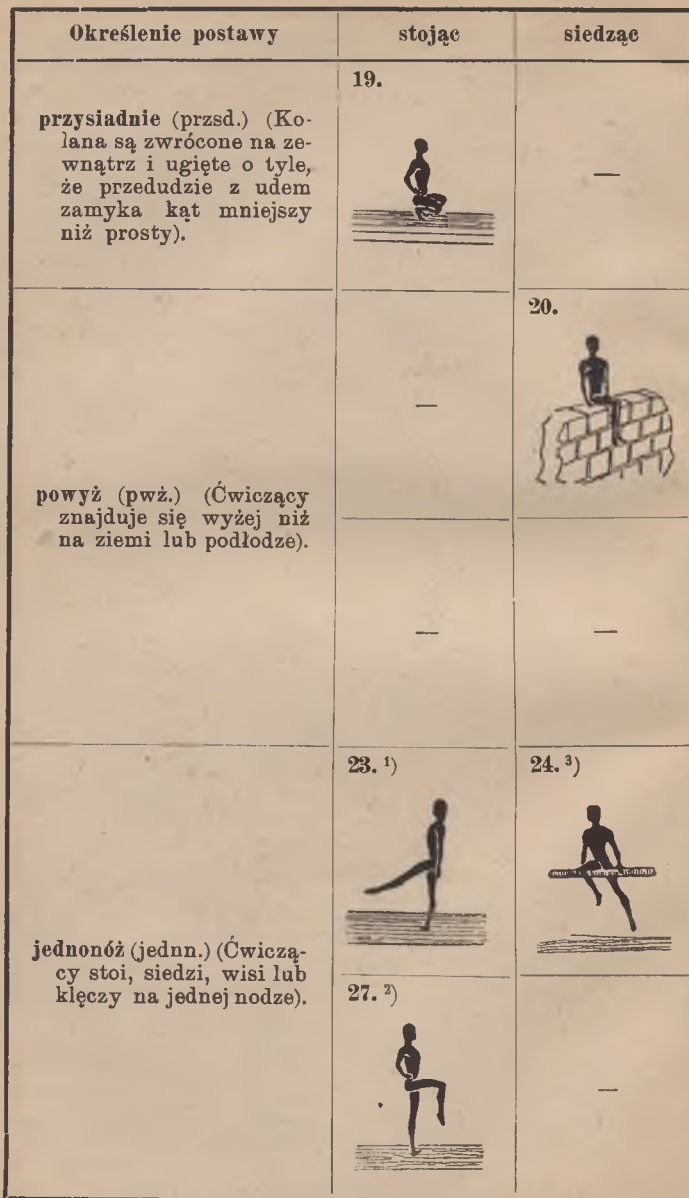 Określenie postawy stojąc siedząc
19.
przysiadnie (przsd.) (Ko-
lana są zwrócone na ze-
wnątrz i ugięte o tyle,
że przedudzie z udem
zamyka kąt mniejszy
niż prosty).
—
20.
—
powyż (pwż.) (Ćwiczący
znajduje się wyżej niż
na ziemi lub podłodze).
— —
23. ¹) 24. ³)
jednonóż (jednn.) (Ćwiczą-
cy stoi, siedzi, wisi lub
klęczy na jednej nodze).
27. ²)
—